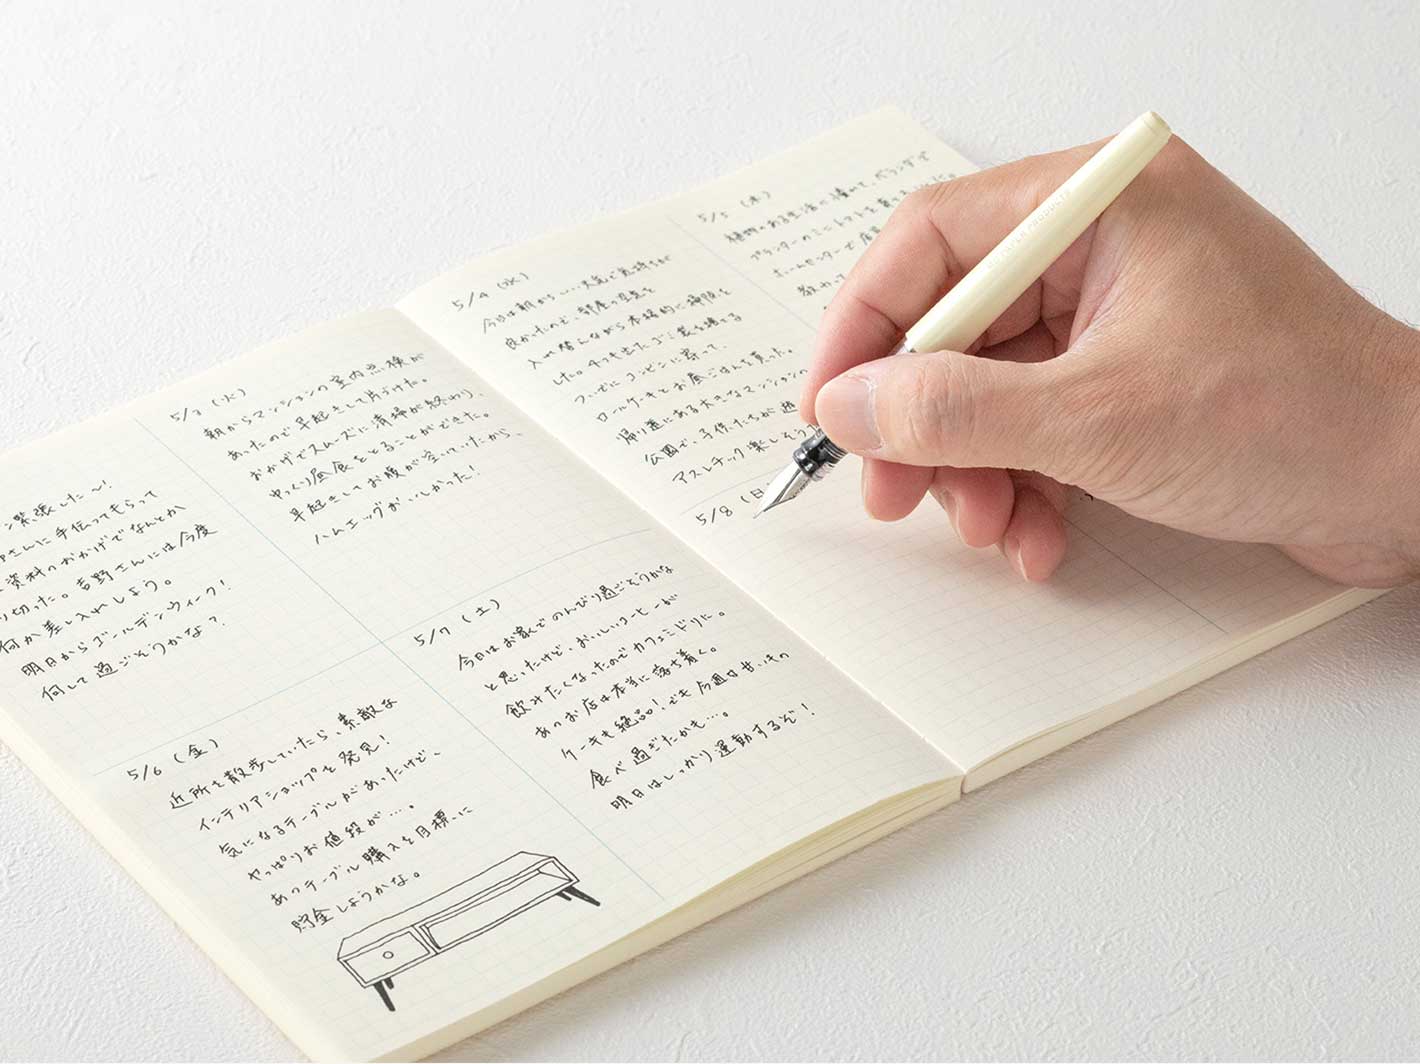 ン緊張したー〜!
さんに手伝ってもらって
資料のおかげでなんとか
り切った。吉野さんには今度
何か差し入れしよう。
明日からゴールデンウィーク!
何して過ごそうかな?
5/3 (火)
朝からマンションの室内点検が
あったので早起きして片づけた。
おかげでスムーズに清掃が終わり、
ゆっくり昼食をとることができた。
早起きしてお腹が空いていたから、
ハムエッグがおいしかった!
5/6 (金)
近所を散歩していたら、素敵な
インテリアショップを発見!
気になるテーブルがあったけど、
やっぱりお値段が…。
あのテーブル購入を目標に
貯金しようかな。
5/7 (土)
今日はお家でのんびり過ごそうかな
と思ったけど、おいしいコーヒーが
飲みたくなったのでカフェミドリに。
あのお店は本当に落ち着く。
ケーキも絶品!でも今週甘いもの
食べ過ぎたかも…。
明日はしっかり運動するぞ!
5/4 (水)
今日は朝からいい天気で気持ちが
良かったので、部屋の空気を
入れ替えながら本格的に掃除を
した。4つも出たゴミ袋を捨てる
ついでにコンビニに寄って、
ロールケーキとお昼ごはんを買った。
帰り道にある大きなマンションの
公園で、子供たちが遊
アスレチック楽しそう
5/5 (木)
植物のある生活に憧れて、ベランダで
プランターのミニトマトを
ホームセンターで
教わって
5/8 (日